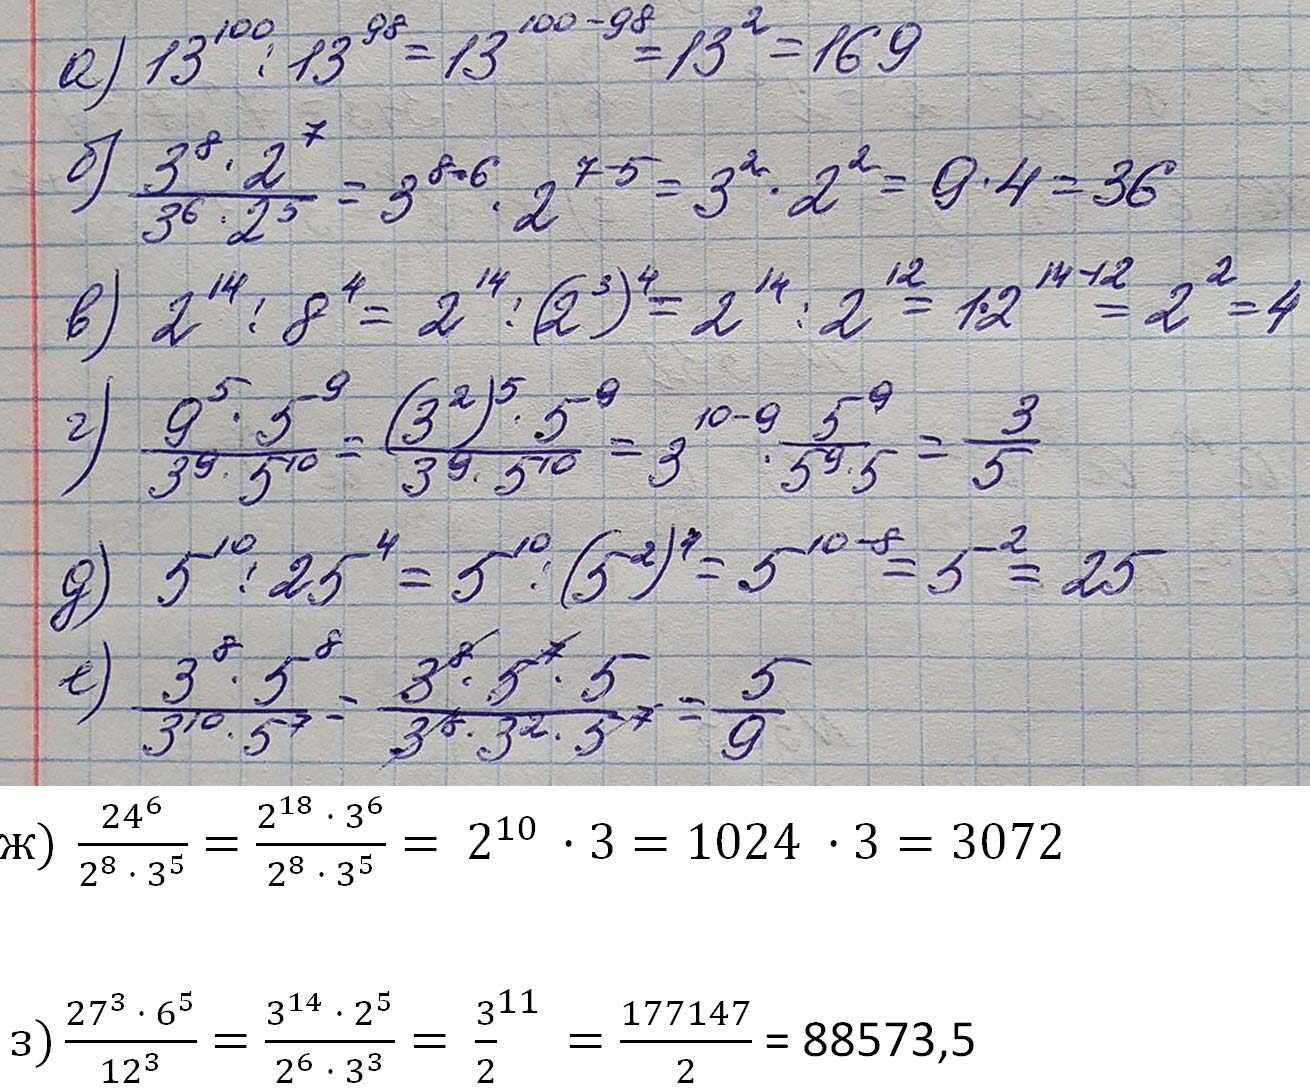 а) 13^100 : 13^98 = 13^(100-98) = 13^2 = 169
б) (3^8 · 2^7)/(3^6 · 2^5) = 3^(8-6) · 2^(7-5) = 3^2 · 2^2 = 9 · 4 = 36
в) 2^14 : 8^4 = 2^14 : (2^3)^4 = 2^14 : 2^12 = 12^(14-12) = 2^2 = 4
г) (9^5 · 5^9)/(3^9 · 5^10) = ((3^2)^5 · 5^9)/(3^9 · 5^10) = 3^(10-9) · 5^9/(5^9 · 5) = 3/5
д) 5^10 : 25^4 = 5^10 : (5^2)^4 = 5^(10-8) = 5^2 = 25
е) (3^8 · 5^8)/(3^10 · 5^7) = (3^8 · 5^7 · 5)/(3^8 · 3^2 · 5^7) = 5/9
ж) 24^6/(2^8 · 3^5) = (2^18 · 3^6)/(2^8 · 3^5) = 2^10 · 3 = 1024 · 3 = 3072
з) (27^3 · 6^5)/12^3 = (3^14 · 2^5)/(2^6 · 3^3) = 3^11/2 = 177147/2 = 88573,5